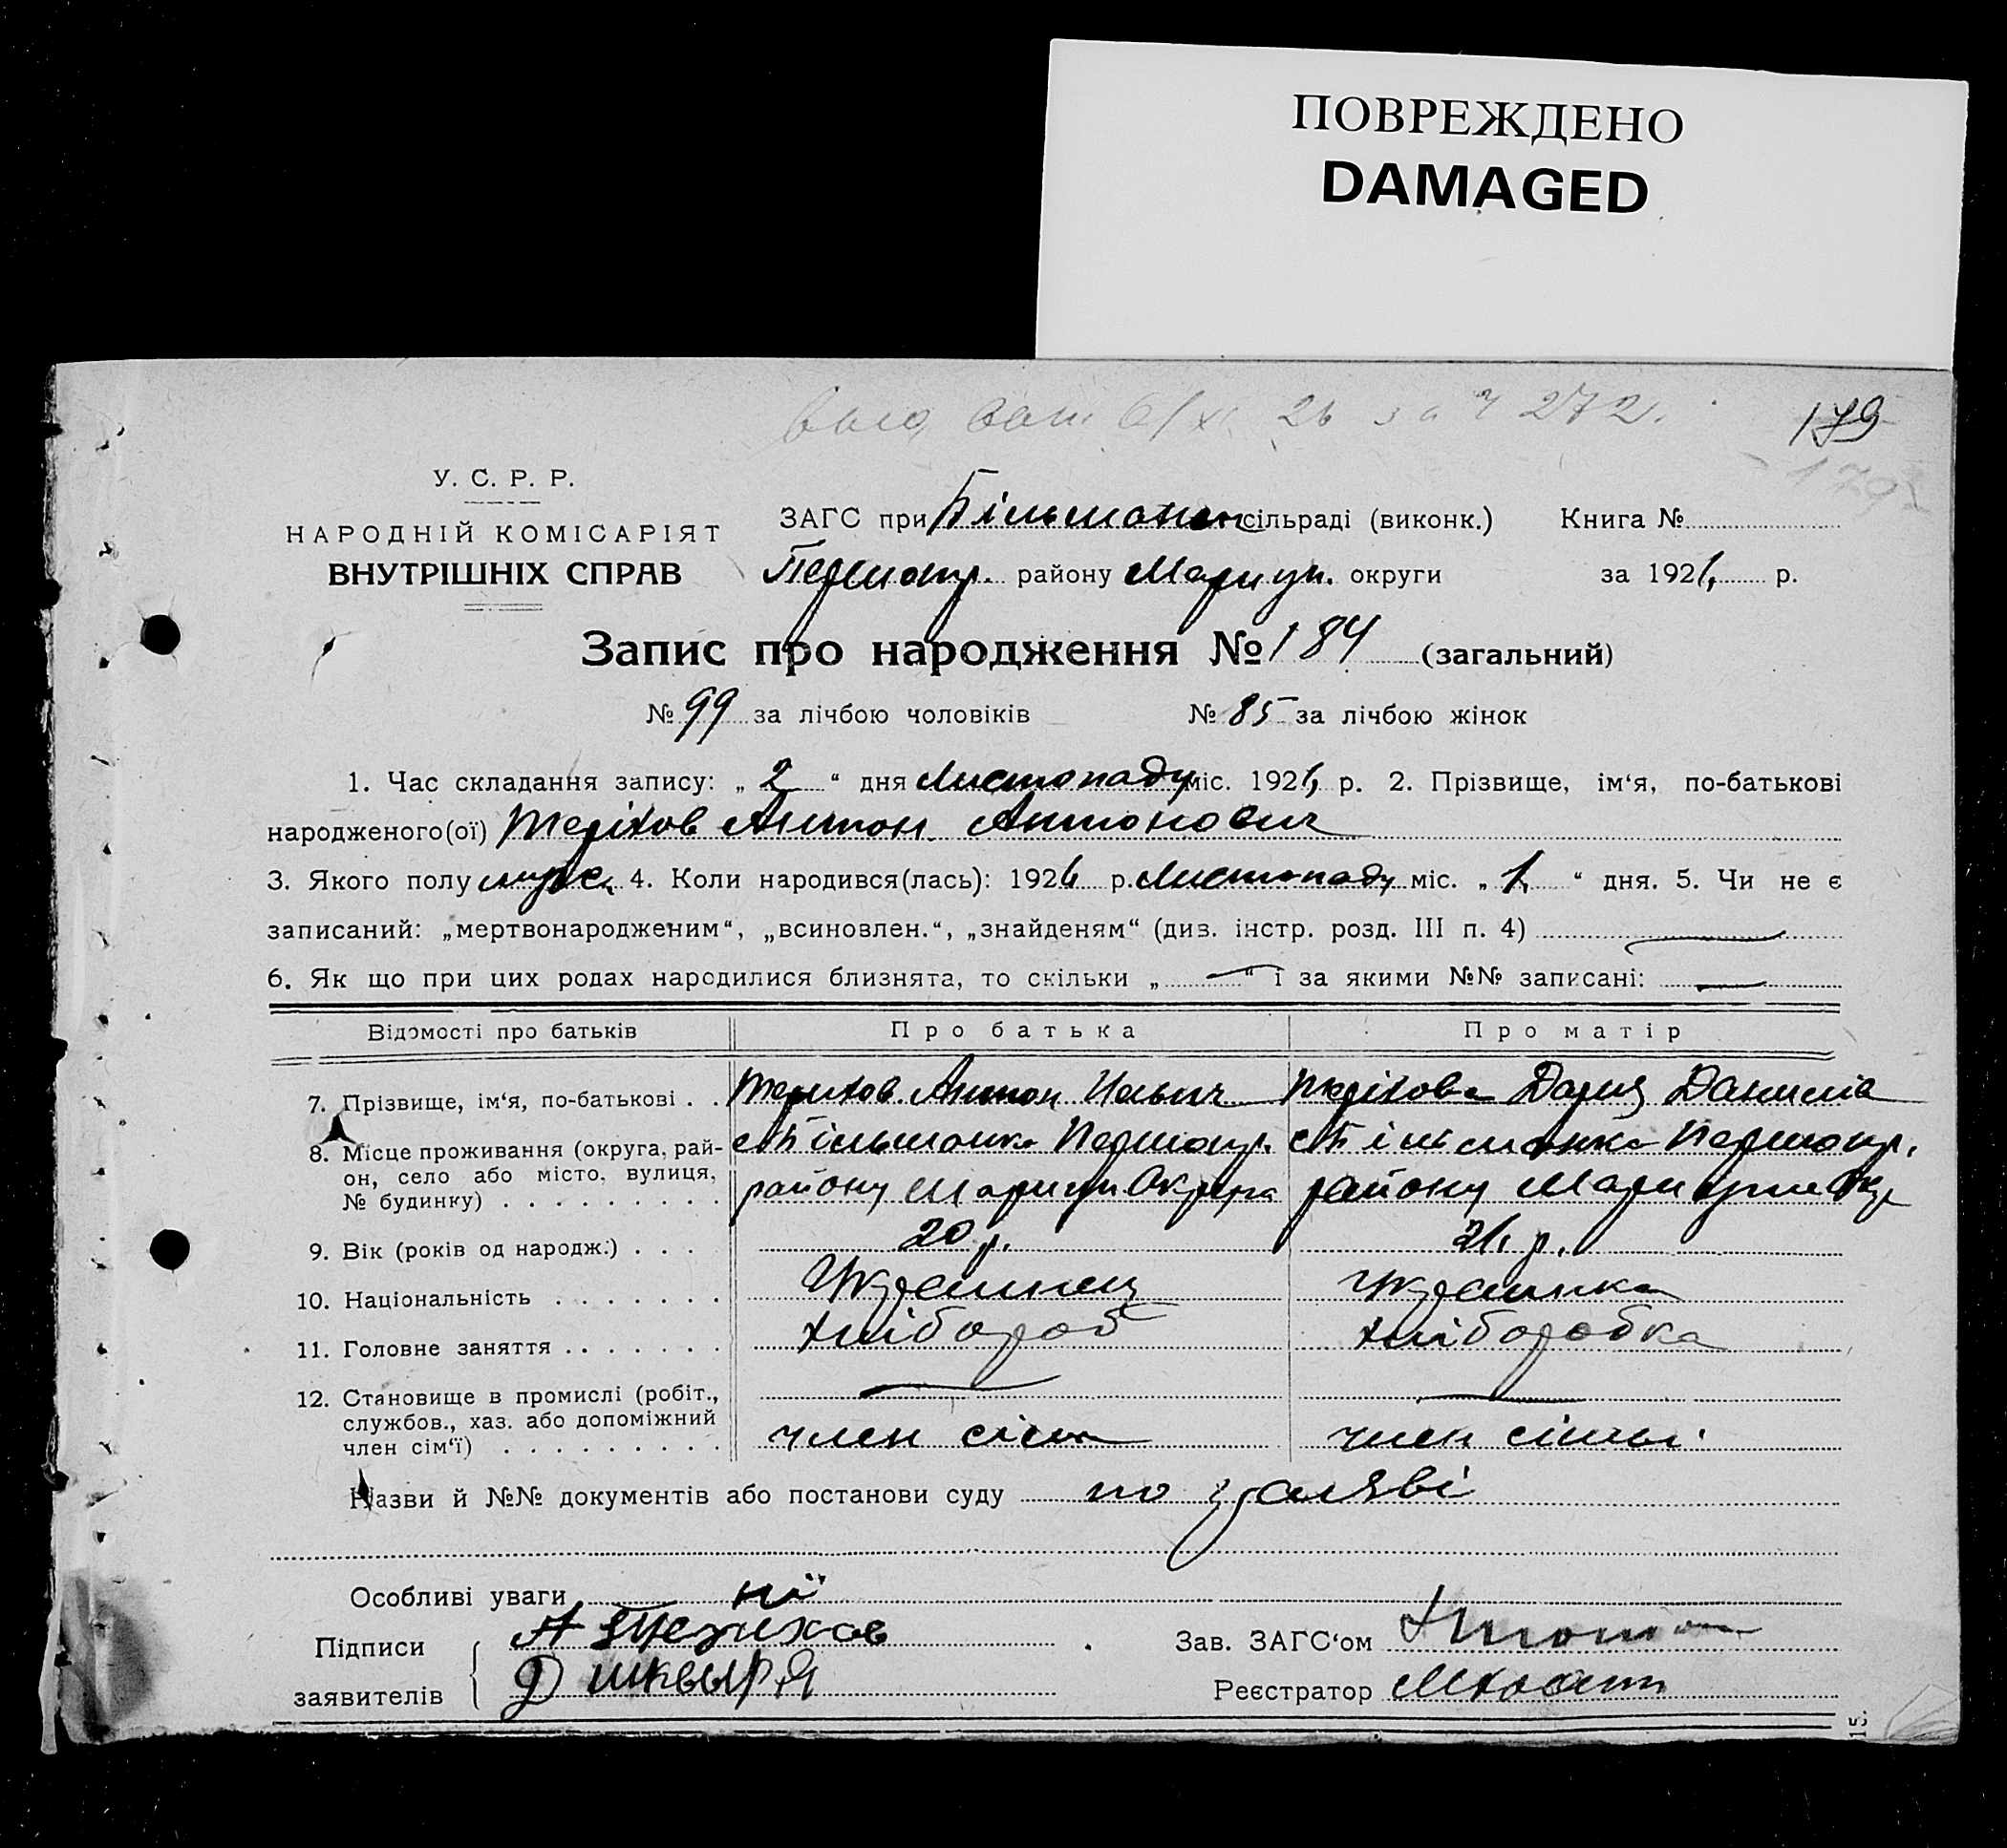 ПОВРЕЖДЕНО
DAMAGED
272.
179
У. С. Р. Р.
НАРОДНІЙ КОМІСАРІЯТ
ВНУТРІШНІХ СПРАВ
ЗАГС при Більманськ сільраді (виконк.) Книга №
Першотр. району Мариуп. округи за 1926 р.
Запис про народження № 184 (загальний)
№ 99 за лічбою чоловіків № 85 за лічбою жінок
1. Час складання запису: „ 2 “ дня Листопаду міс. 1926 р. 2. Прізвище, ім‘я, по-батькові
народженого(ої) Теріхов Антон Антонович
3. Якого полу муж. 4. Коли народився(лась): 1926 р. Листопаду міс. „ 1 “ дня. 5. Чи не є
записаний: „мертвонародженим“, „всиновлен.“, „знайденям“ (див. інстр. розд. III п. 4)
6. Як що при цих родах народилися близнята, то скільки „ “ і за якими №№ записані:
Відомості про батьків Про батька Про матір
7. Прізвище, ім‘я, по-батькові . . Терихов Антон Ильич Теріхова Дария Данилів
8. Місце проживання (округа, рай- с Більманка Першотр. с Більманка Першотр.
он, село або місто, вулиця, району Мариуп Округа району Мариупил Окр
№ будинку) . . . . . . . . .
9. Вік (років од народж.) . . . 20 р. 21 р.
10. Національність . . . . . . . Украинец Украинка
11. Головне заняття . . . . . . . хлібороб хліборобка
12. Становище в промислі (робіт.,
службов., хаз. або допоміжний
член сім‘ї) . . . . . . . . . член сімї член сімьї
Назви й №№ документів або постанови суду по заяві
Особливі уваги ні
Підписи А Терихов Зав. ЗАГС‘ом
заявителів Д Шквыря Реєстратор
15.